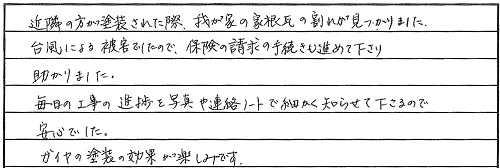 近隣の方が塗装された際、我が家の家根瓦の割れが見つかりました。
台風による被害でしたので、保険の請求の手続きも進めて下さり
助かりました。
毎日の工事の進捗を写真や連絡ノートで細かく知らせて下さるので
安心でした。
ガイヤの塗装の効果が楽しみです。